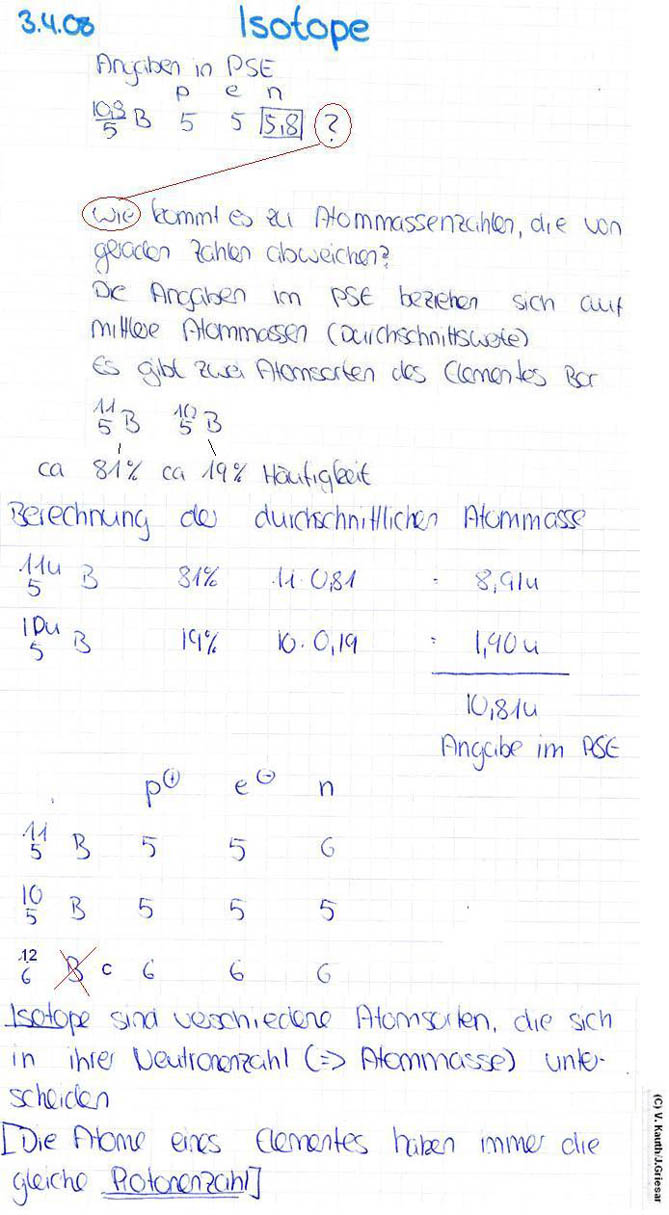 3.4.08 Isotope
Angaben in PSE
p e n
10,8/5 B 5 5 5,8 ?
Wie kommt es zu Atommassenzahlen, die von
geraden Zahlen abweichen?
Die Angaben im PSE beziehen sich auf
mittlere Atommassen (Durchschnittswerte)
Es gibt zwei Atomsorten des Elementes Bor
11/5 B 10/5 B
ca 81% ca 19% Häufigkeit
Berechnung der durchschnittlichen Atommasse
11u/5 B 81% 11·0,81 = 8,91u
10u/5 B 19% 10·0,19 = 1,90u
10,81u
Angabe im PSE
p⊕ e⊖ n
11/5 B 5 5 6
10/5 B 5 5 5
12/6 B C 6 6 6
Isotope sind verschiedene Atomsorten, die sich
in ihrer Neutronenzahl (=> Atommasse) unter-
scheiden
[Die Atome eines Elementes haben immer die
gleiche Protonenzahl]
(C) V. Kauth/J.Griesar